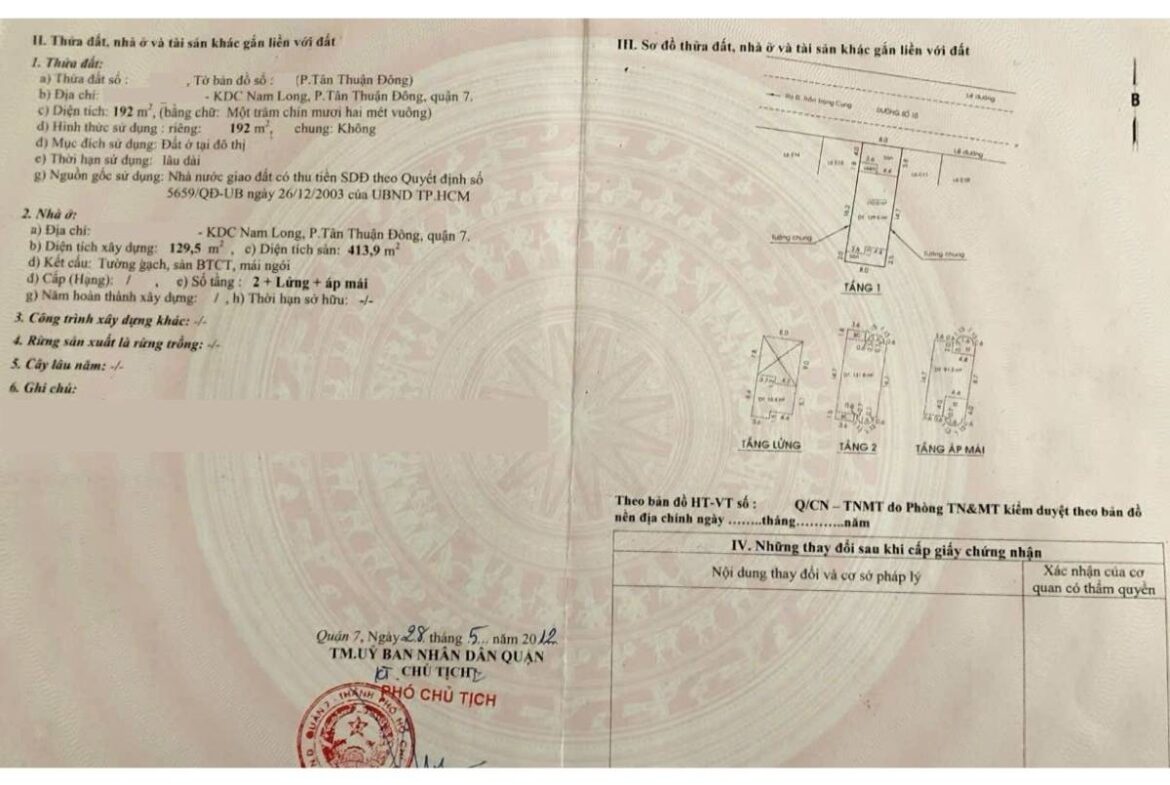 II. Thửa đất, nhà ở và tài sản khác gắn liền với đất
1. Thửa đất:
a) Thửa đất số : , Tờ bản đồ số : (P.Tân Thuận Đông)
b) Địa chỉ: - KDC Nam Long, P.Tân Thuận Đông, quận 7.
c) Diện tích: 192 m², (bằng chữ: Một trăm chín mươi hai mét vuông)
d) Hình thức sử dụng : riêng: 192 m², chung: Không
đ) Mục đích sử dụng: Đất ở tại đô thị
e) Thời hạn sử dụng: lâu dài
g) Nguồn gốc sử dụng: Nhà nước giao đất có thu tiền SDĐ theo Quyết định số
5659/QĐ-UB ngày 26/12/2003 của UBND TP.HCM
2. Nhà ở:
a) Địa chỉ: - KDC Nam Long, P.Tân Thuận Đông, quận 7.
b) Diện tích xây dựng: 129,5 m² , c) Diện tích sàn: 413,9 m²
d) Kết cấu: Tường gạch, sàn BTCT, mái ngói
đ) Cấp (Hạng): / , e) Số tầng : 2 + Lửng + áp mái
g) Năm hoàn thành xây dựng: / , h) Thời hạn sở hữu: -/-
3. Công trình xây dựng khác: -/-
4. Rừng sản xuất là rừng trồng: -/-
5. Cây lâu năm: -/-
6. Ghi chú:
Quận 7, Ngày 28 tháng 5 năm 2012
TM.UỶ BAN NHÂN DÂN QUẬN
KT. CHỦ TỊCH
PHÓ CHỦ TỊCH
III. Sơ đồ thửa đất, nhà ở và tài sản khác gắn liền với đất
B
Lề đường
Ra đ. Trần Trọng Cung
ĐƯỜNG SỐ
Lề đường
8.0
Tường chung
Tường chung
8.0
TẦNG 1
TẦNG LỬNG
TẦNG 2
TẦNG ÁP MÁI
Theo bản đồ HT-VT số : Q/CN – TNMT do Phòng TN&MT kiểm duyệt theo bản đồ
nền địa chính ngày ........tháng...........năm
IV. Những thay đổi sau khi cấp giấy chứng nhận
Nội dung thay đổi và cơ sở pháp lý
Xác nhận của cơ
quan có thẩm quyền